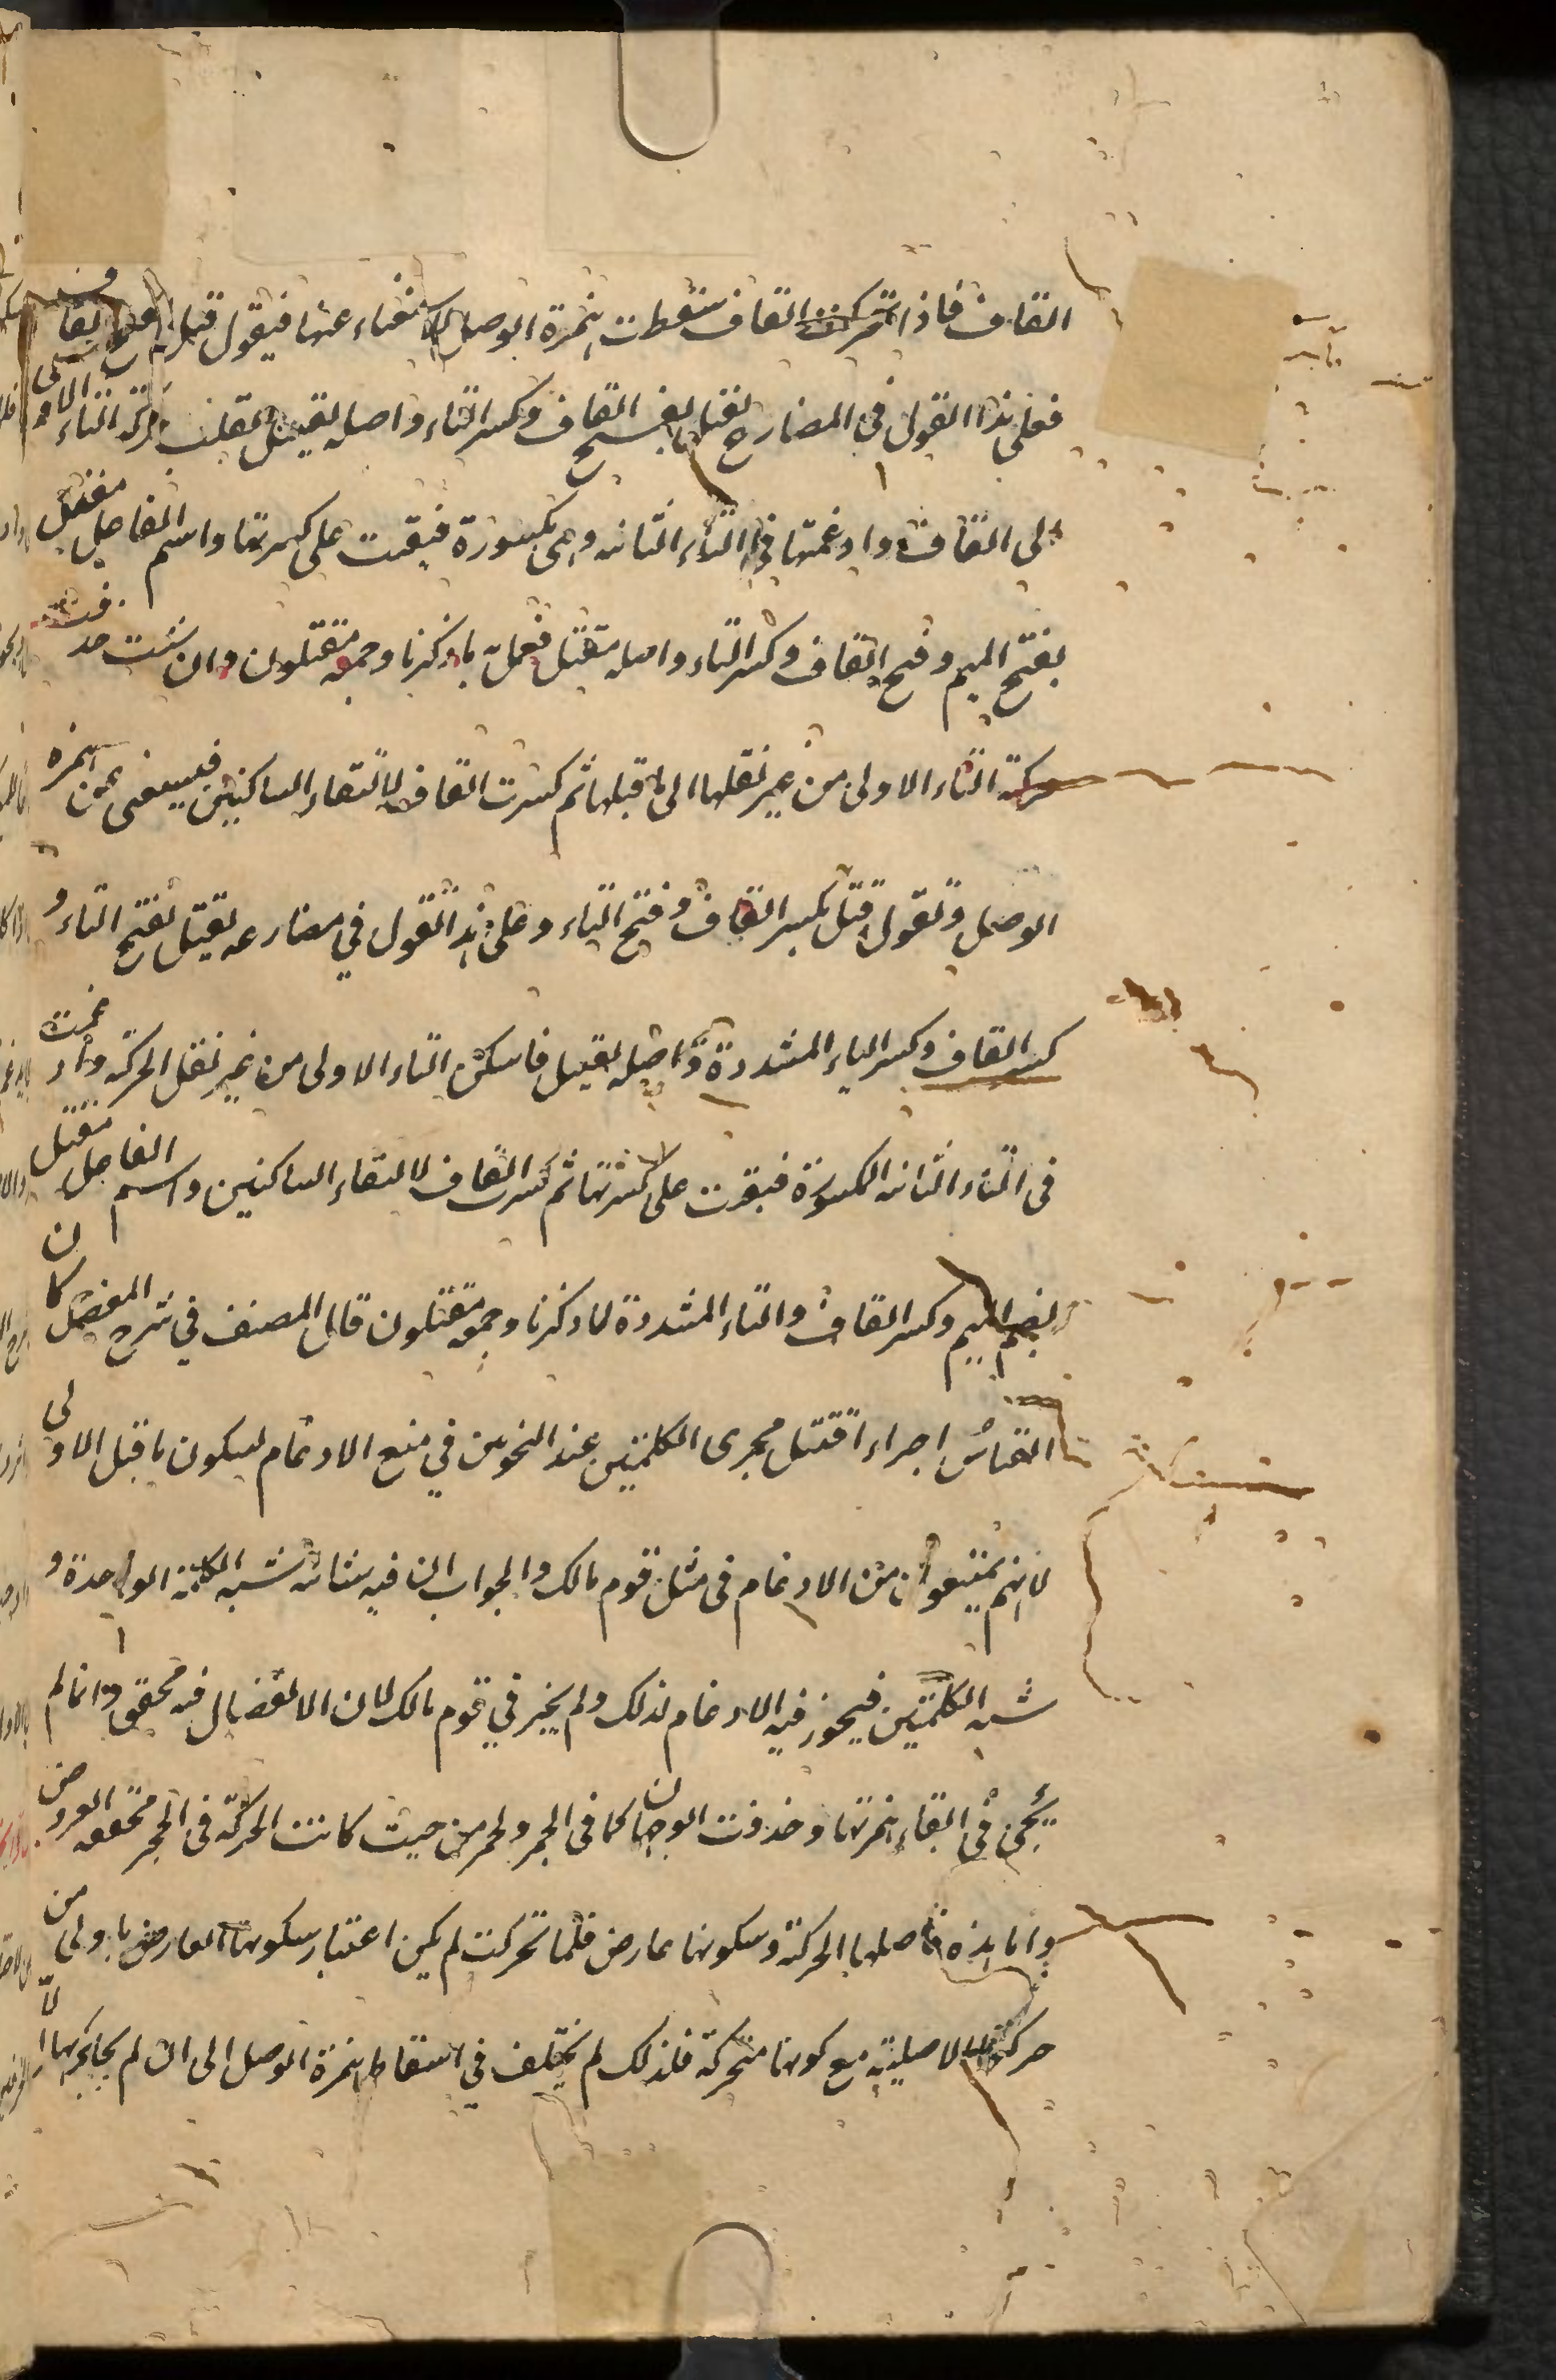 القاف فاذا تحركت القاف سقطت همزة الوصل للاستغناء عنها فيقول قتل بفتح القاف
فعلى هذا القول في المضارع يقتل بفتح القاف وكسر التاء واصله يقتتل نقلت حركة التاء الاولى
الى القاف وادغمتها في التاء الثانيه وهى مكسورة فبقيت على كسرتها واسم الفاعل مقتل
بفتح الميم وفتح القاف وكسر التاء واصله مقتتل فعمل به ما ذكرنا وجمعه مقتلون وان شئت حذفت
حركة التاء الاولى من غير نقلها الى ما قبلها ثم كسرت القاف لالتقاء الساكنين فيستغنى عن همزة
الوصل وتقول قتل بكسر القاف وفتح التاء وعلى هذا القول في مضارعه يقتل بفتح الياء و
كسر القاف وكسر التاء المشددة واصله يقتتل فاسكن التاء الاولى من غير نقل الحركة وادغمت
فى التاء الثانيه المكسورة فبقيت على كسرتها ثم كسر القاف لالتقاء الساكنين واسم الفاعل مقتل
بضم الميم وكسر القاف والتاء المشددة لما ذكرنا وجمعه مقتلون قال المصنف في شرح المفصل كان
القياسُ اجراء اقتتل مجرى الكلمتين عند النحويين في منع الادغام لسكون ما قبل الاولى
لانهم يمتنعون من الادغام فى مثل قوم مالك والجواب ان فيه شائبة شبه الكلمة الواحدة و
شبه الكلمتين فيجوز فيه الادغام لذلك ولم يجز في قوم مالك لان الانفصال فيه محقق وانما لم
يجئ في ابقاء همزتها وحذفت الوجهان كما فى الحمر ولحمر من حيث كانت الحركة فى الحمر محققه العروض
واما هذه فاصلها الحركة وسكونها عارض فلما تحركت لم يكن اعتبار سكونها العارض باولى من
حركتها الاصلية مع كونها متحركة فلذلك لم يختلف في اسقاط همزة الوصل الى ان لم